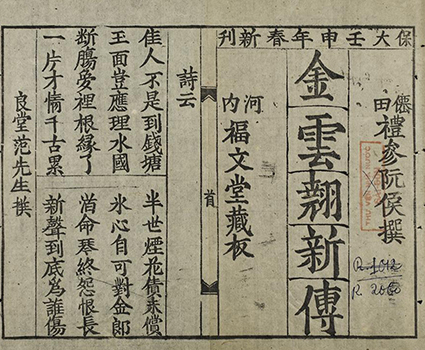 保大壬申年春新刊
僊田禮參阮侯撰
金雲翹新傳
河內
福文堂藏板
首
詩云
佳人不是到錢塘 半世煙花債未償
玉面豈應埋水國 氷心自可對金郎
断膓夢裡根縁了 泊命琴終怨恨長
一片才情千古累 新聲到底爲誰傷
良堂范先生撰